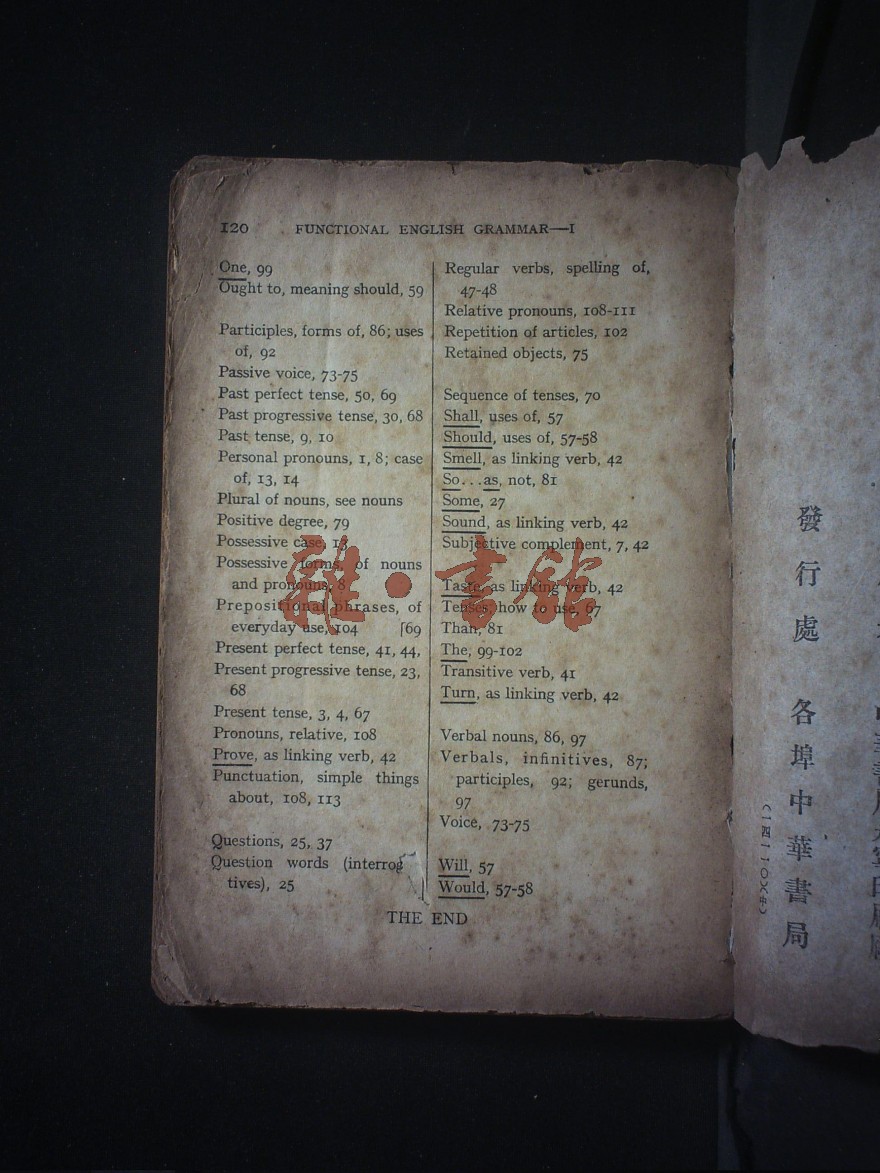 120 FUNCTIONAL ENGLISH GRAMMAR—I
One, 99
Ought to, meaning should, 59
Participles, forms of, 86; uses
of, 92
Passive voice, 73-75
Past perfect tense, 50, 69
Past progressive tense, 30, 68
Past tense, 9, 10
Personal pronouns, 1, 8; case
of, 13, 14
Plural of nouns, see nouns
Positive degree, 79
Possessive case, 13
Possessive forms, of nouns
and pronouns, 8
Prepositional phrases, of
everyday use, 104 [69
Present perfect tense, 41, 44,
Present progressive tense, 23,
68
Present tense, 3, 4, 67
Pronouns, relative, 108
Prove, as linking verb, 42
Punctuation, simple things
about, 108, 113
Questions, 25, 37
Question words (interrog
tives), 25
Regular verbs, spelling of,
47-48
Relative pronouns, 108-111
Repetition of articles, 102
Retained objects, 75
Sequence of tenses, 70
Shall, uses of, 57
Should, uses of, 57-58
Smell, as linking verb, 42
So...as, not, 81
Some, 27
Sound, as linking verb, 42
Subjective complement, 7, 42
Taste, as linking verb, 42
Tenses, how to use, 67
Than, 81
The, 99-102
Transitive verb, 41
Turn, as linking verb, 42
Verbal nouns, 86, 97
Verbals, infinitives, 87;
participles, 92; gerunds,
97
Voice, 73-75
Will, 57
Would, 57-58
THE END
雜·書館
發行處 各埠中華書局